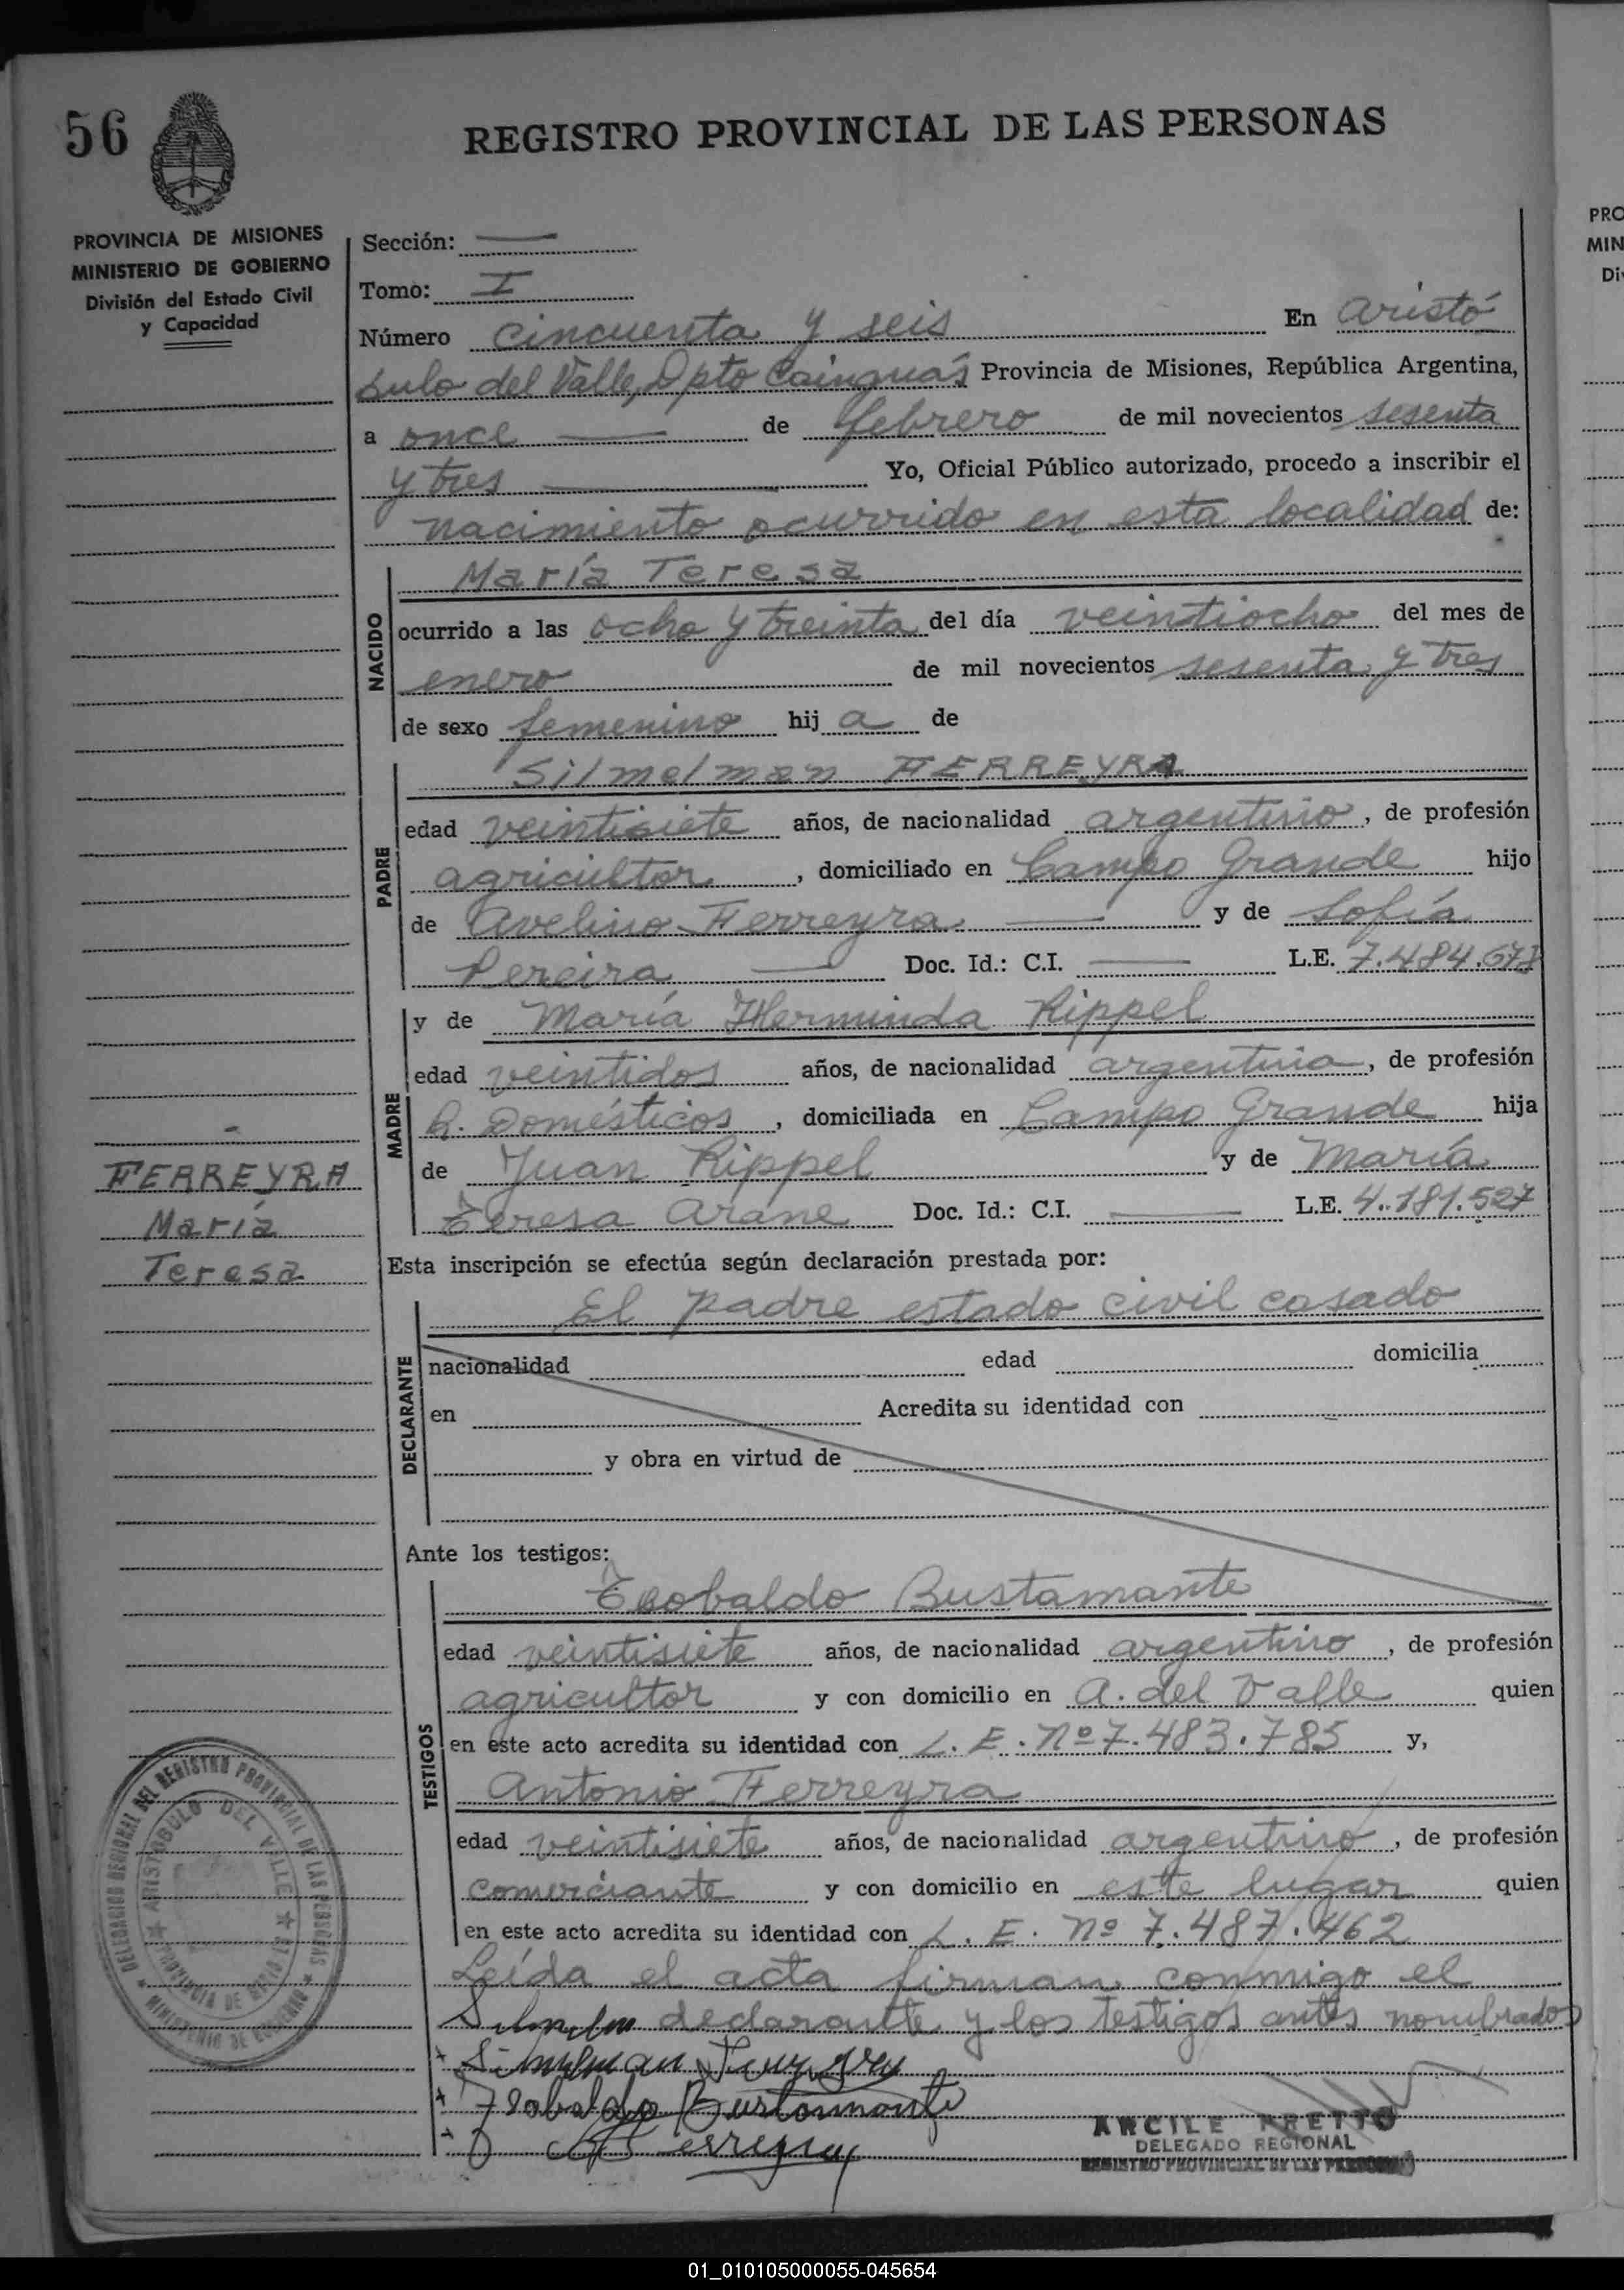 56
REGISTRO PROVINCIAL DE LAS PERSONAS
PROVINCIA DE MISIONES
MINISTERIO DE GOBIERNO
División del Estado Civil
y Capacidad
Sección: —
Tomo: I
Número cincuenta y seis En Aristó
bulo del Valle, Dpto Cainguás Provincia de Misiones, República Argentina,
a once — de febrero de mil novecientos sesenta
y tres — Yo, Oficial Público autorizado, procedo a inscribir el
nacimiento ocurrido en esta localidad de:
NACIDO
María Teresa
ocurrido a las ocho y treinta del día veintiocho del mes de
enero de mil novecientos sesenta y tres
de sexo femenino hij a de
PADRE
Silmelman FERREYRA
edad veintisiete años, de nacionalidad argentino, de profesión
agricultor, domiciliado en Campo Grande hijo
de Avelino Ferreyra — y de Sofía
Pereira — Doc. Id.: C.I. — L.E. 7.484.678
MADRE
y de María Herminda Rippel
edad veintidos años, de nacionalidad argentina, de profesión
Q. Domésticos, domiciliada en Campo Grande hija
de Juan Rippel y de María
Teresa Arane Doc. Id.: C.I. — L.E. 4.181.527
FERREYRA
María
Teresa
Esta inscripción se efectúa según declaración prestada por:
DECLARANTE
El padre estado civil casado
nacionalidad edad domicilia
en Acredita su identidad con
y obra en virtud de
Ante los testigos:
TESTIGOS
Teobaldo Bustamante
edad veintisiete años, de nacionalidad argentino, de profesión
agricultor y con domicilio en A. del Valle quien
en este acto acredita su identidad con L. E. Nº 7.483.785 y,
Antonio Ferreyra
edad veintisiete años, de nacionalidad argentino, de profesión
comerciante y con domicilio en este lugar quien
en este acto acredita su identidad con L. E. Nº 7.487.462
Leída el acta firman conmigo el
declarante y los testigos antes nombrados
Teobaldo Bustamante
Ferreyra
DELEGACION REGIONAL DEL REGISTRO PROVINCIAL DE LAS PERSONAS
ARISTOBULO DEL VALLE
PROVINCIA DE
MINISTERIO DE GOBIERNO
ARCILE PRETTO
DELEGADO REGIONAL
REGISTRO PROVINCIAL DE LAS PERSONAS
PRO
MIN
Di
01_010105000055-045654